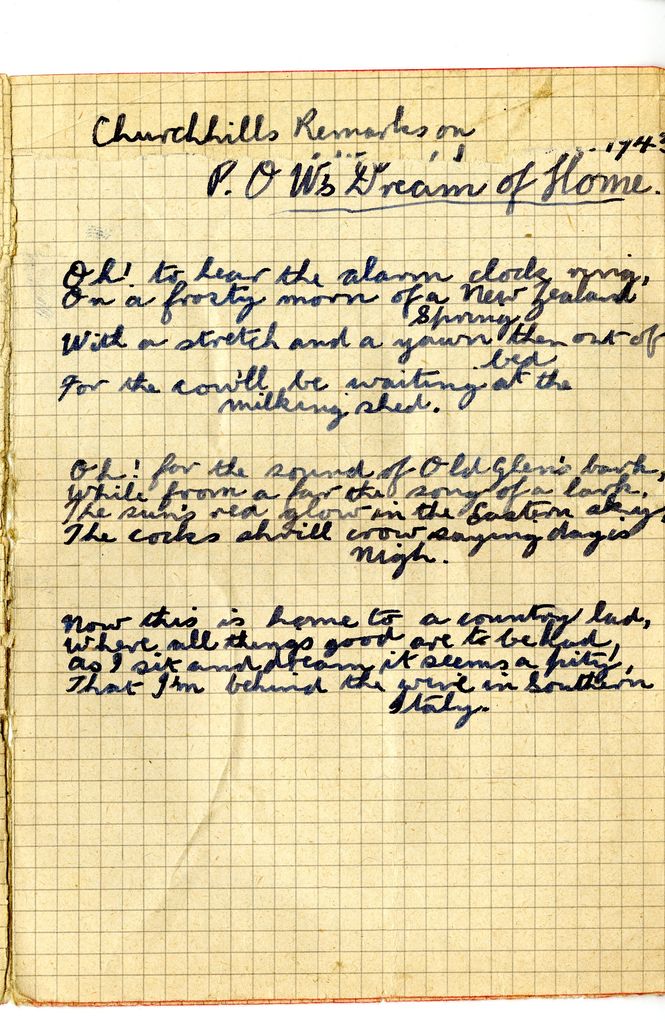 Churchhills Remarks on
P. O Ws Dream of Home.
Oh! to hear the alarm clock ring,
On a frosty morn of a New Zealand
Spring
With a stretch and a yawn then out of
bed
For the cow'll be waiting at the
milking shed.
Oh! for the sound of Old Glen's bark,
While from a far the song of a lark.
The sun's red glow in the Eastern sky,
The cocks shrill crow saying day is
nigh.
Now this is home to a country lad,
Where all things good are to be had,
As I sit and dream it seems a pity,
That I'm behind the wire in Southern
Italy.